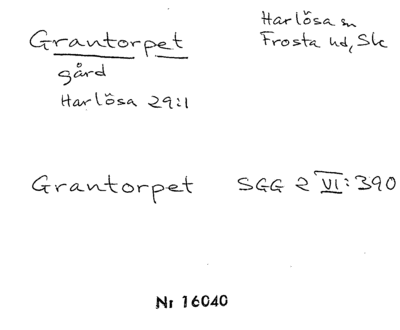 Grantorpet
gård
Harlösa 29:1
Harlösa sn
Frosta hd, Sk
Grantorpet SGG 2 VI:390
Nr 16040